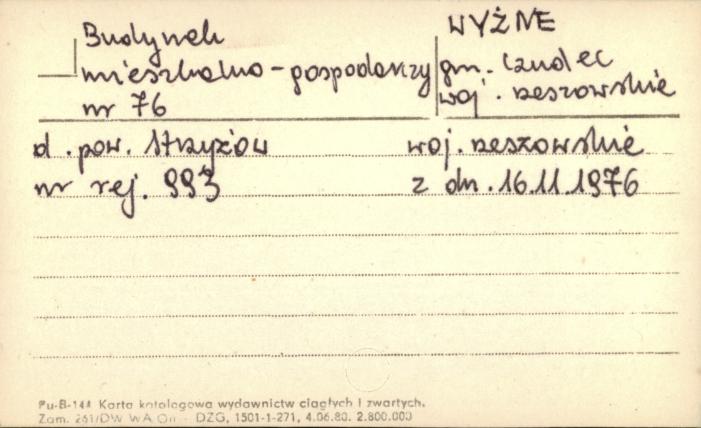 Budynek
mieszkalno-gospodarczy
nr 76
WYŻNE
gm. Czudec
woj. rzeszowskie
d. pow. Strzyżów
woj. rzeszowskie
nr rej. 993
z dn. 16.11.1976
Pu-B-144 Karta katalogowa wydawnictw ciągłych i zwartych.
Zam. 261/DW WA DZG, 1501-1-271, 4.06.80. 2.800.000